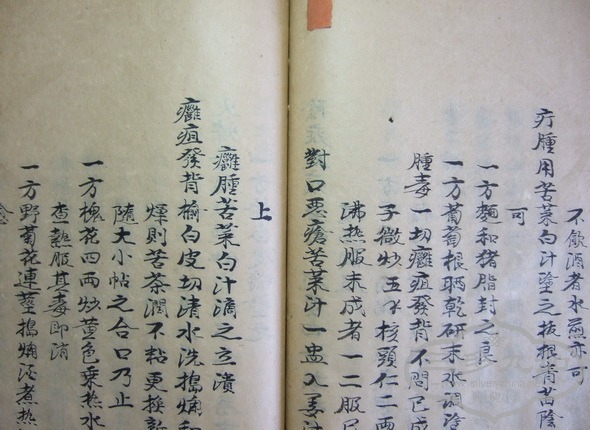 不飲酒者水煎亦可
疔腫用苦菜白汁塗之拔根青苗陰
可
一方麵和猪脂封之良
一方葡萄根晒乾研末水調塗
腫毒一切癰疽發背不問已成
子微炒五 核頭仁二兩
沸热服未成者一二服已
對口惡瘡苦菜汁一盅入姜汁
上
癰腫苦菜白汁滴之立潰
癰疽發背榆白皮切清水洗搗爛和
燥則苦茶潤不粘更換新
随大小帖之合口乃止
一方槐花四两炒黄色乗热水
查熱服其毒即消
一方野菊花連莖搗爛酒煮热